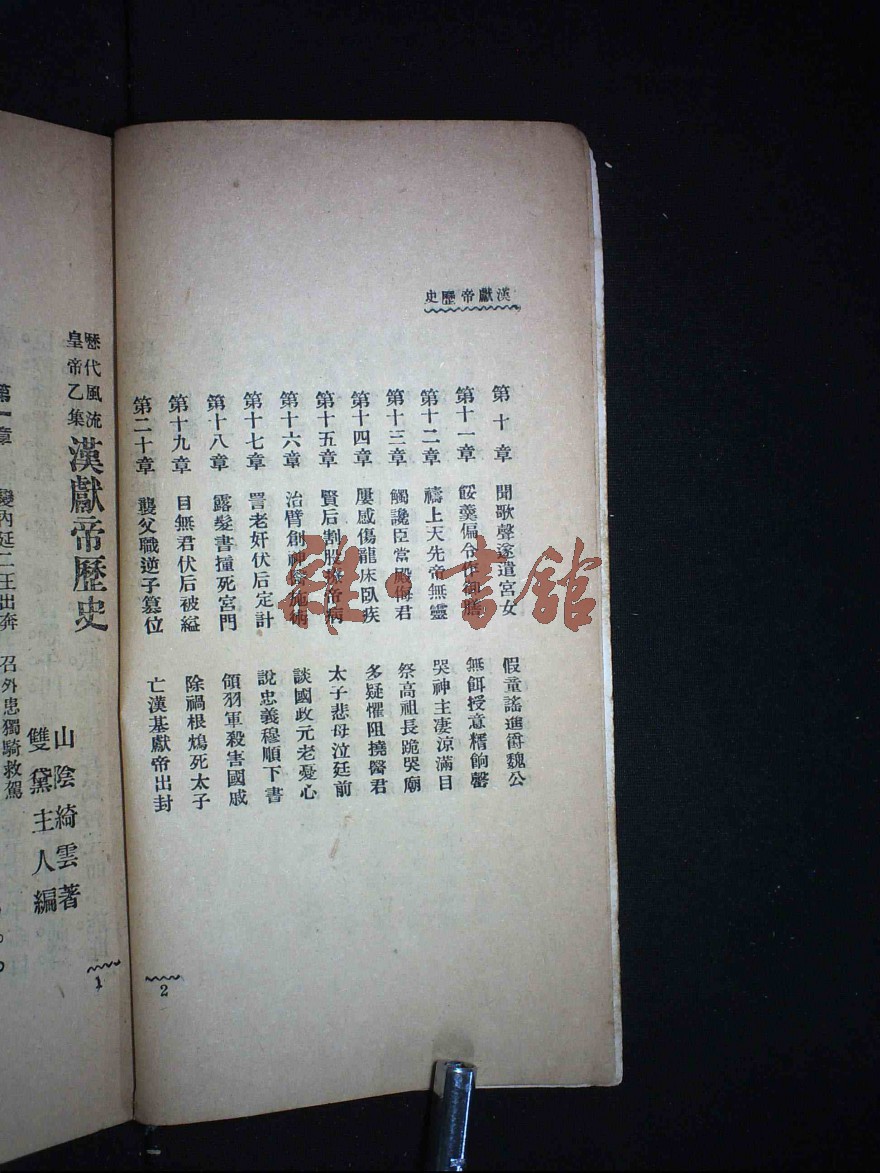 漢獻帝歷史
第十章 聞歌聲遂遣宮女 假童謠進爵魏公
第十一章 餒羹偏分作御膳 無餌授意糈餉罄
第十二章 禱上天先帝無靈 哭神主凄涼滿目
第十三章 觸讒臣當殿侮君 祭高祖長跪哭廟
第十四章 屢感傷龍床臥疾 多疑懼阻撓醫君
第十五章 賢后割股療帝病 太子悲母泣廷前
第十六章 治臂創神醫施術 談國政元老憂心
第十七章 詈老奸伏后定計 說忠義穆順下書
第十八章 露髮書撞死宮門 領羽軍殺害國戚
第十九章 目無君伏后被縊 除禍根鴆死太子
第二十章 襲父職逆子篡位 亡漢基獻帝出封
2
歷代風流
皇帝乙集
漢獻帝歷史
山陰綺雲著
雙黛主人編
第一章 變內廷二王出奔 召外患獨騎救駕
1
雜·書館